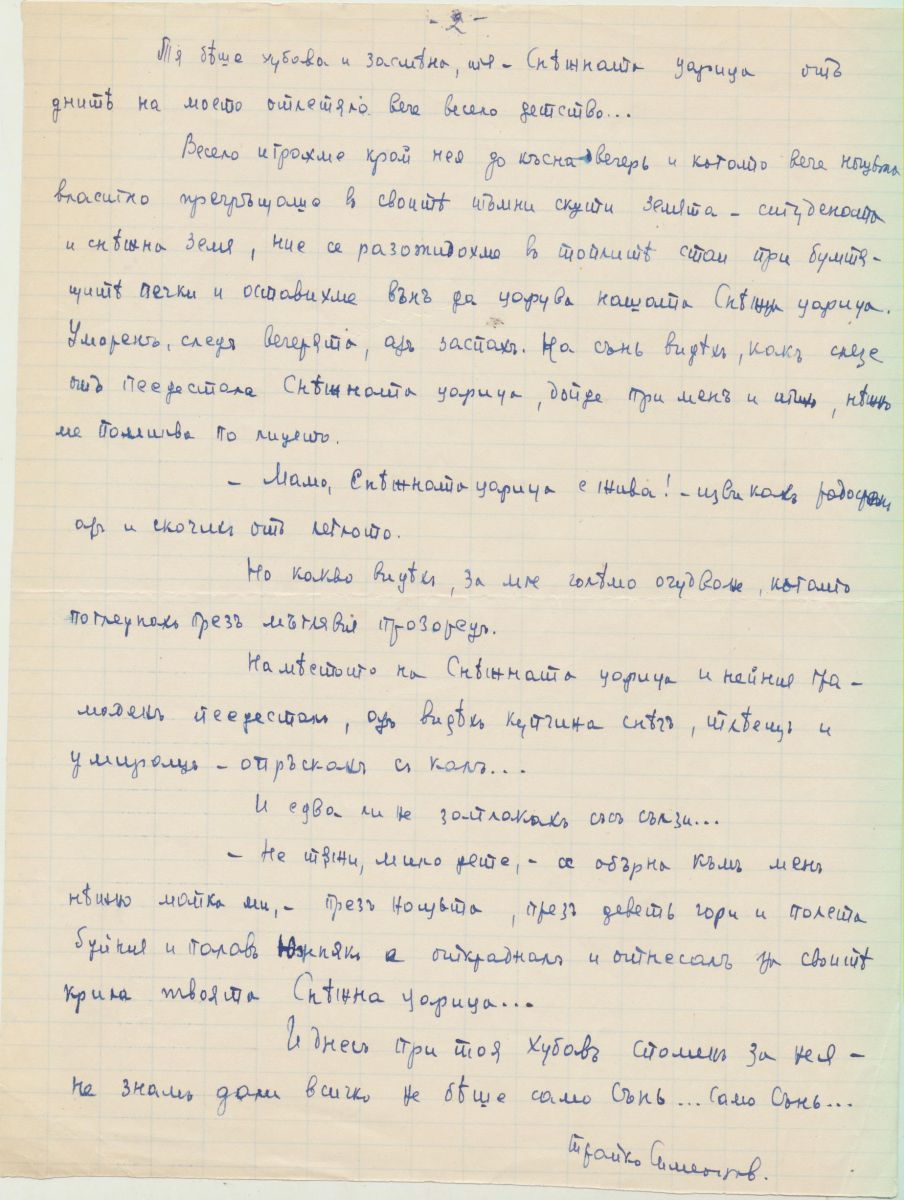 - 2 -
Тя бѣше хубава и засмѣна, тя - Снѣжната царица отъ
днитѣ на моето отлетяло вече весело детство...
Весело играхме край нея до късна вечерь и когато вече нощьта
властно прегръщаше въ своитѣ тъмни скути земята - студената
и снѣжна земя, ние се разотивахме въ топлитѣ стаи при бумтя-
щитѣ печки и оставихме вънъ да царува нашата Снѣжна царица.
Уморенъ, следъ вечерята, азъ заспахъ. На сънь видѣхъ, какъ слезе
отъ пеедестала Снѣжната царица, дойде при менъ и тихо, нѣжно
ме помилва по лицето.
- Мамо, Снѣжната царица е жива! - извикахъ радостенъ
азъ и скочихъ отъ леглото.
Но какво видѣхъ, за мое голѣмо очудване, когато
погледнахъ презъ мъглявия прозорецъ.
На мѣстото на Снѣжната царица и нейния гра-
маденъ пеедесталъ, азъ видѣхъ купчина снѣгъ, тлѣещъ и
умиращъ - опръсканъ съ калъ...
И едва ли не заплакахъ съсъ сълзи...
- Не тъжи, мило дете, - се обърна къмъ менъ
нѣжно майка ми, - презъ нощьта, презъ деветь гори и полета
буйния и палавъ Южнякъ е открадналъ и отнесалъ на своитѣ
крила твоята Снѣжна царица...
И днесъ при тоя хубавъ споменъ за нея -
не знамъ дали всичко не бѣше само Сънь... само Сънь...
Трайко Симеонов.